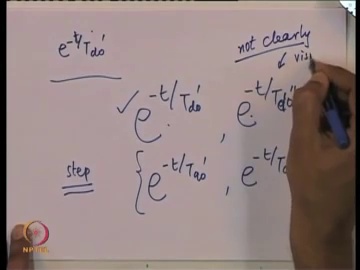 e^{-t/T_{do}'}
not clearly
visi
e^{-t/T_{do}'} , e^{-t/T_{do}''}
step { e^{-t/T_{do}'} , e^{-t/T_d
NPTEL